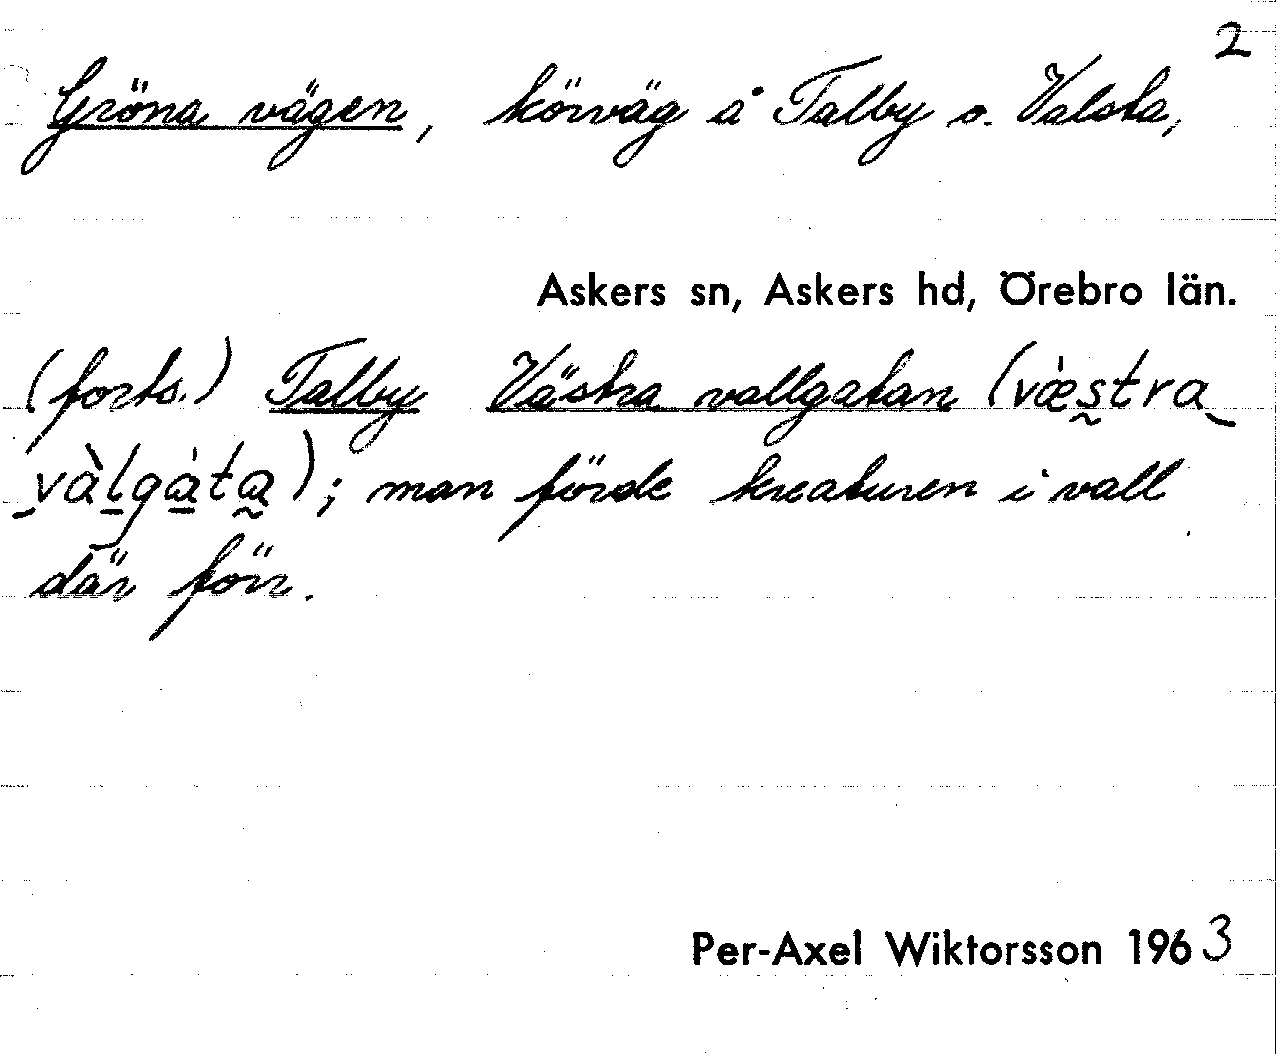 2
Gröna vägen, körväg å Talby o. Valsta,
Askers sn, Askers hd, Örebro län.
(forts.) Talby Västra vallgatan (væ̀stra
vàlgàta); man förde kreaturen i vall
där förr.
Per-Axel Wiktorsson 1963